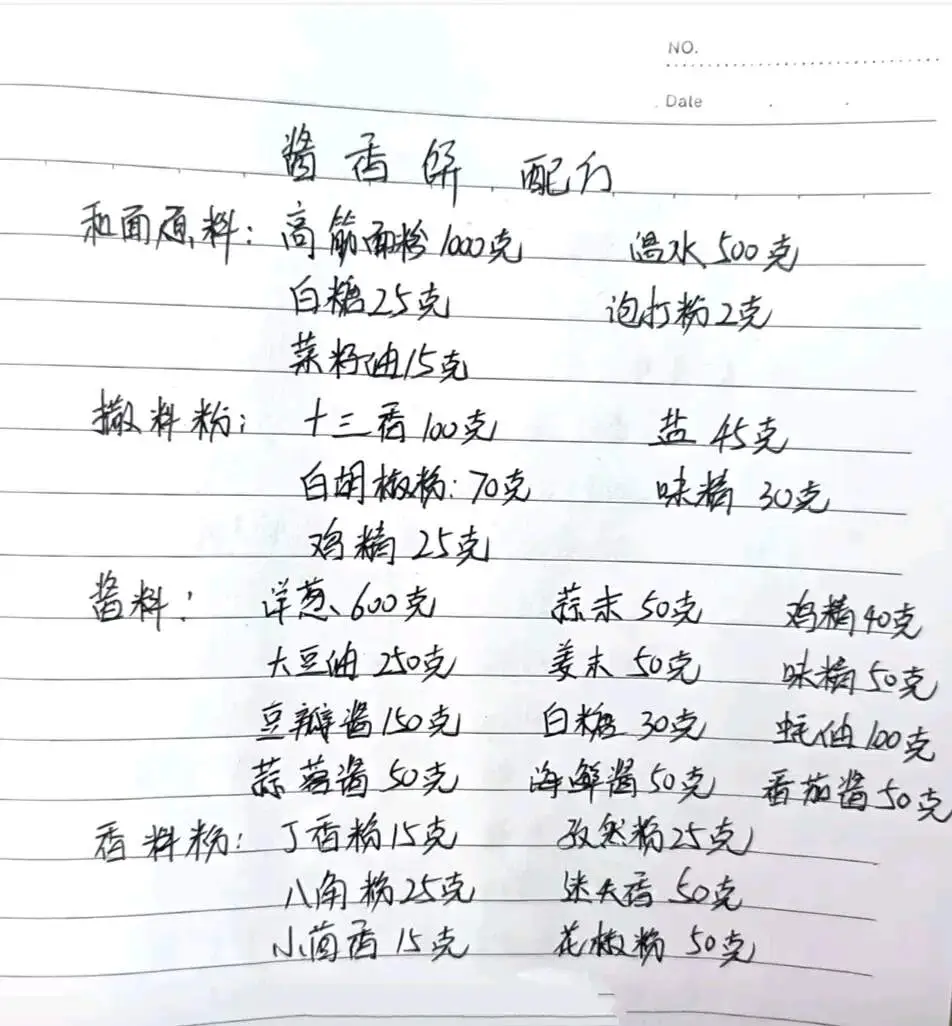 NO.
Date
酱香饼 配方
和面原料: 高筋面粉1000克 温水500克
白糖25克 泡打粉2克
菜籽油15克
撒料粉: 十三香100克 盐45克
白胡椒粉:70克 味精30克
鸡精25克
酱料: 洋葱600克 蒜末50克 鸡精40克
大豆油250克 姜末50克 味精50克
豆瓣酱150克 白糖30克 蚝油100克
蒜蓉酱50克 海鲜酱50克 番茄酱50克
香料粉: 丁香粉15克 孜然粉25克
八角粉25克 迷夭香50克
小茴香15克 花椒粉50克